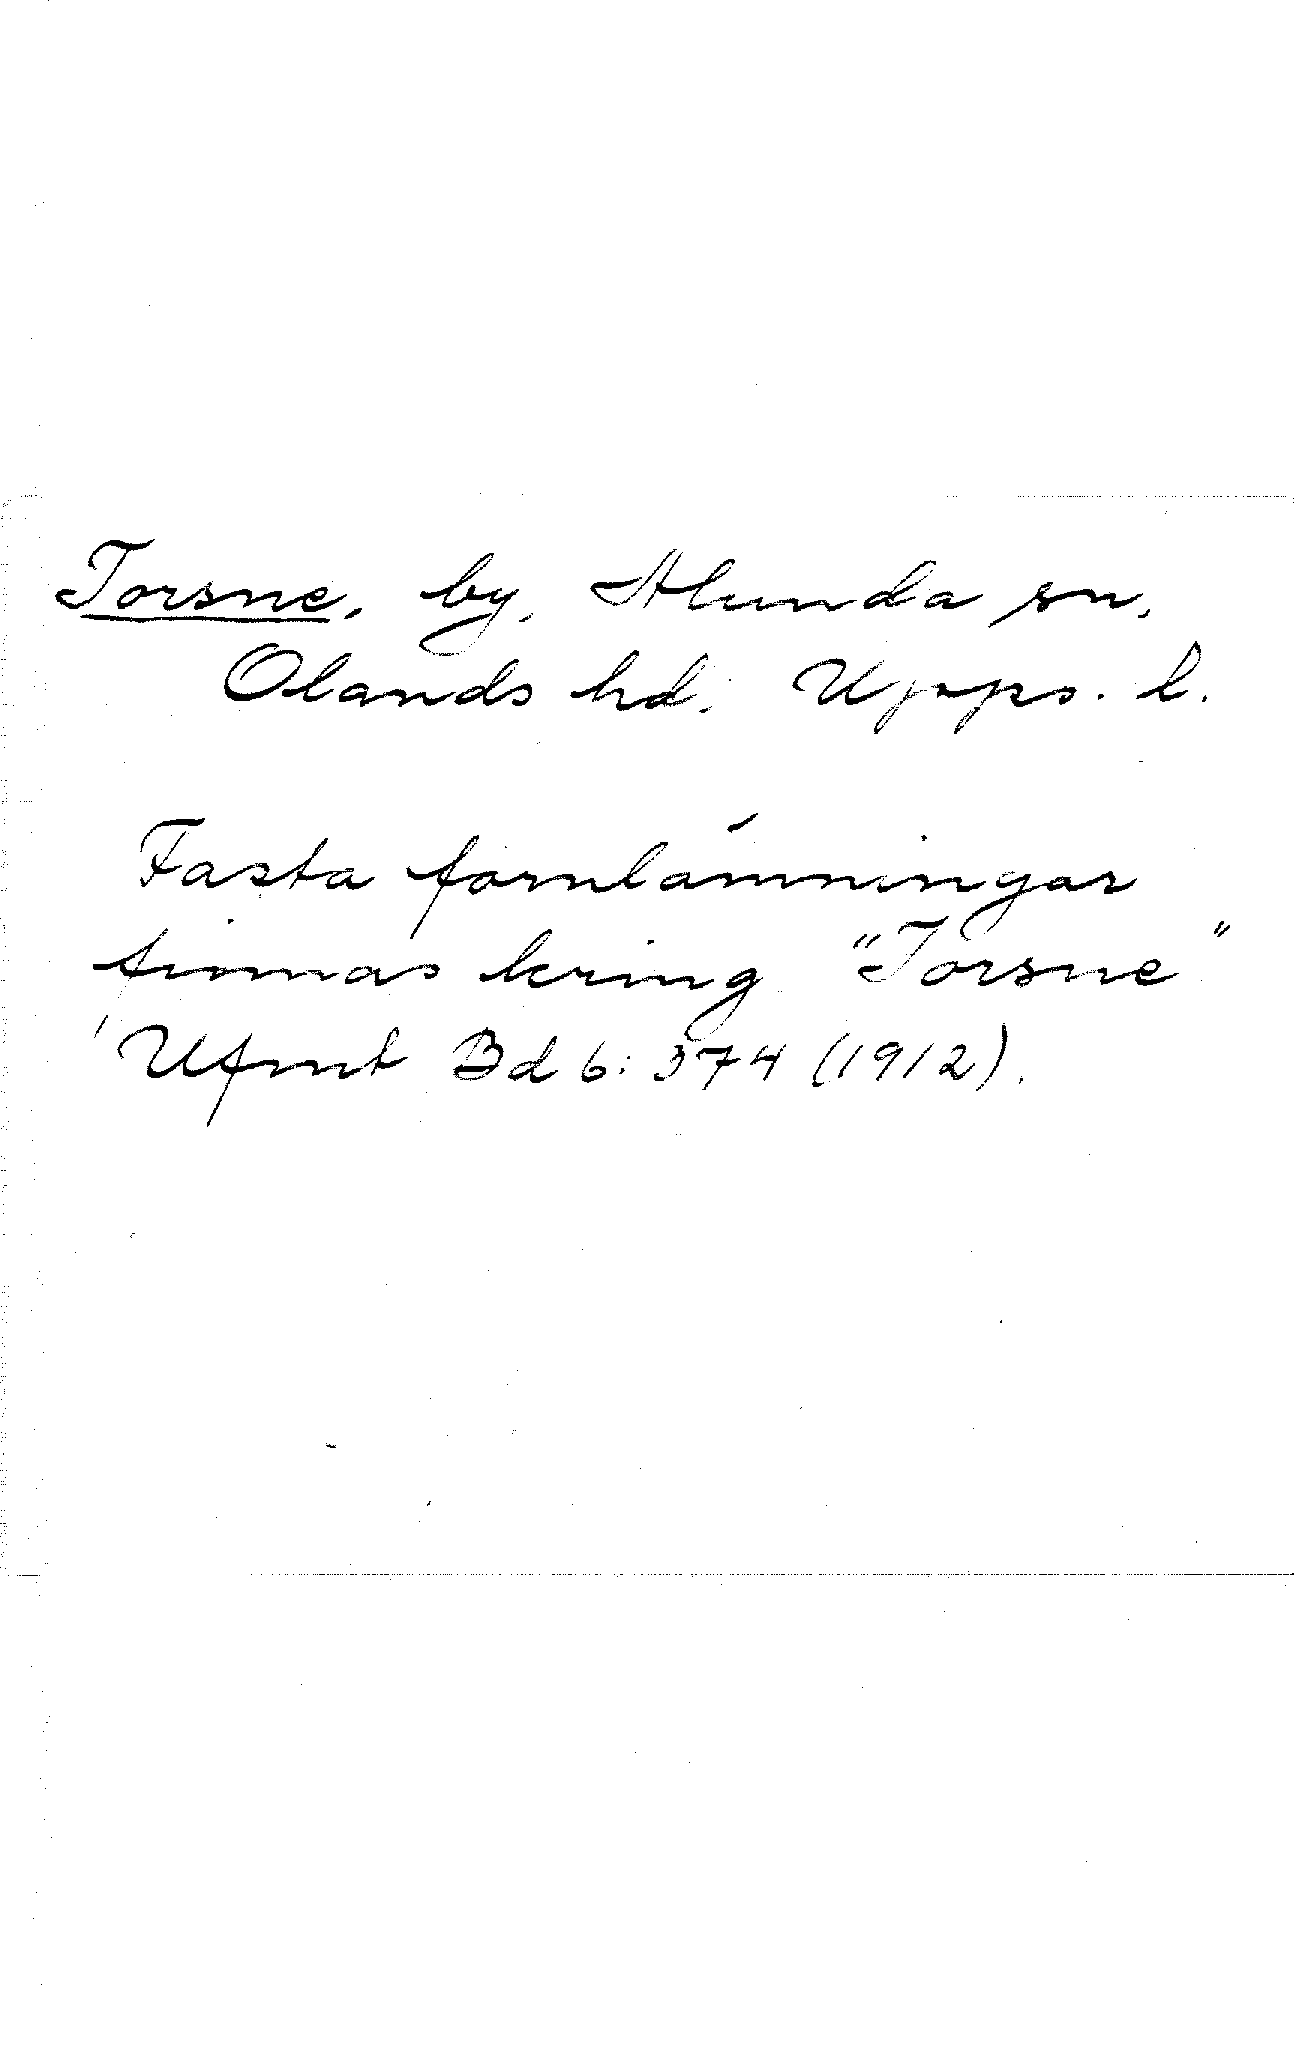 Torsne, by, Alunda sn,
Olands hd. Upps. l.
Fasta fornlämningar
finnas kring "Torsne"
Ufmt Bd 6: 374 (1912).